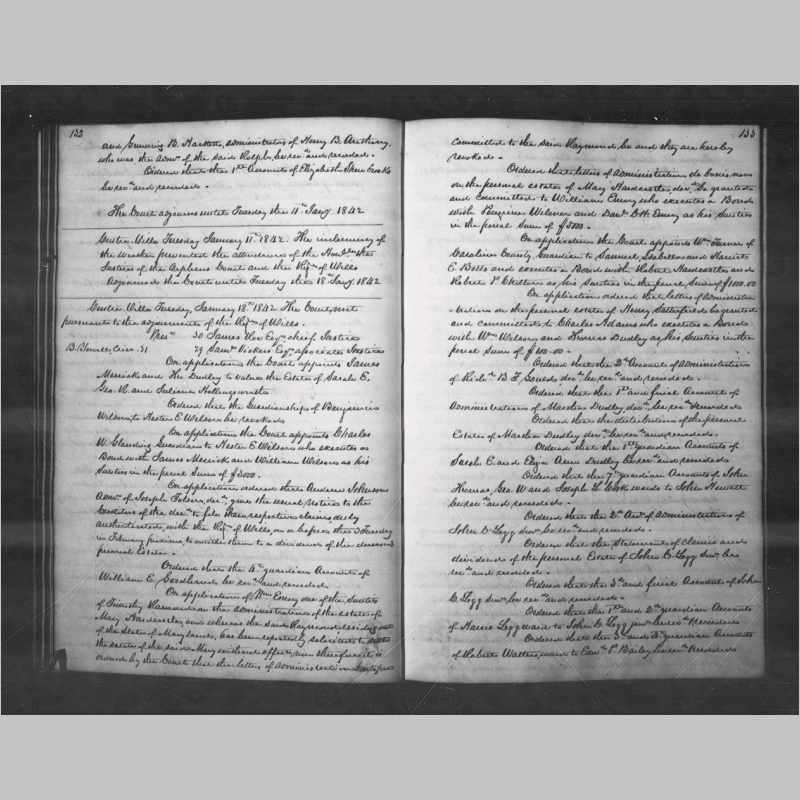 132
and Gunning B. Hackett, administrators of Henry B. Anthony,
who was the Admr. of the said Rolph, be recd. and recorded.
Ordered that the 1st Account of Elizabeth Ann
be recd. and recorded.
The Court adjourns until Tuesday the 11th Jany 1842
Tuesday January 11th 1842. The inclemency of
the weather prevented the attendance of the Honble. the
Justices of the Orphans Court and the Regr. of Wills
Adjourns the Court untill Tuesday the 18th Jany 1842
Tuesday, January 18th 1842 The Court met
pursuant to the adjournment of the Regr. of Wills.
Prest 30 James Esqr. chief Justice
31 29 Saml. Esqr. associate Justices
On application the Court appoints James
Merrick and Dudley to value the Estate of Sarah E.
Geo. R. and Juliana Hollingsworth
Ordered that the Guardianship of Benjamin
Wilson, to Hester E. Wilson be revoked
On application the Court appoints Charles
W. Guardian to Hester E Wilson who executes a
Bond with James Merrick and William Wilson as his
Sureties in the penal Sum of $3000.
On application ordered that Andrew Johnson
Admr. of Joseph decd. give the usual Notice to the
Creditors of the decd. to file their respective claims, duly
authenticated, with the Regr. of Wills, on or before the 3 Tuesday
in February to entitle them to a dividend of the deceased
personal Estate.
Ordered that the 4th guardian Account of
William E. be recd. and recorded
On application of Wm Emory one of the Sureties
of Timothy the administrator of the estate of
Mary Hardcastle, and whereas the said
of the State of Maryland, has been reported
the estate of the said Mary therefore it is
ordered by the Court that the letters of administration
133
committed to the said Raymond be and they are hereby
revoked.
Ordered that letters of Administration de bonis non
on the personal estate of Mary Hardcastle, decd. be granted
and committed to William Emory who executes a Bond
with Wilson and Danl. C H. Emory as his Sureties
in the penal Sum of $5000.
On application the Court appoints Wm. Turner of
Caroline County Guardian to Samuel, Isabella and Harriet
E. Betts and executes a Bond with Robert Hardcastle and
Robert as his Sureties in the penal Sum of $100.00
On application ordered that letters of Administra
tration on the personal estate of Henry Satterfield be granted
and committed to Charles Adams who executes a Bond
with Wm Wilson and Thomas Dudley as his Sureties in the
penal Sum of
Ordered that the 3d Account of Administration
of Richd. B. F. decd. be recd. and recorded.
Ordered that the 1st and final Account of
Administration of Marsha Dudley decd. be recd. & recorded
Ordered that the distribution of the personal
Estate of Marsha Dudley decd. be recd. and recorded.
Ordered that the 1st guardian Account of
Sarah E. and Eliza Ann Dudley be recd. and recorded.
Ordered that the 7th guardian Account of John
Thomas, Geo. W and Joseph L. Cook wards to John
be recd. and recorded.
Ordered that the 2d Act. of administration of
John C. Legg Junr. be recd. and recorded.
Ordered that the Statement of claims and
dividend of the personal Estate of John C. Legg Junr. be
recd. and recorded.
Ordered that the 3d and final Account of John
C. Legg Junr. be recd. and recorded.
Ordered that the 1st and 2d guardian Account
of Legg ward to John C. Legg Junr. be recd. & recorded
Ordered that the 2d and 3d guardian Account
of Walters, ward to Edwd. P. Bailey be recd. & recorded